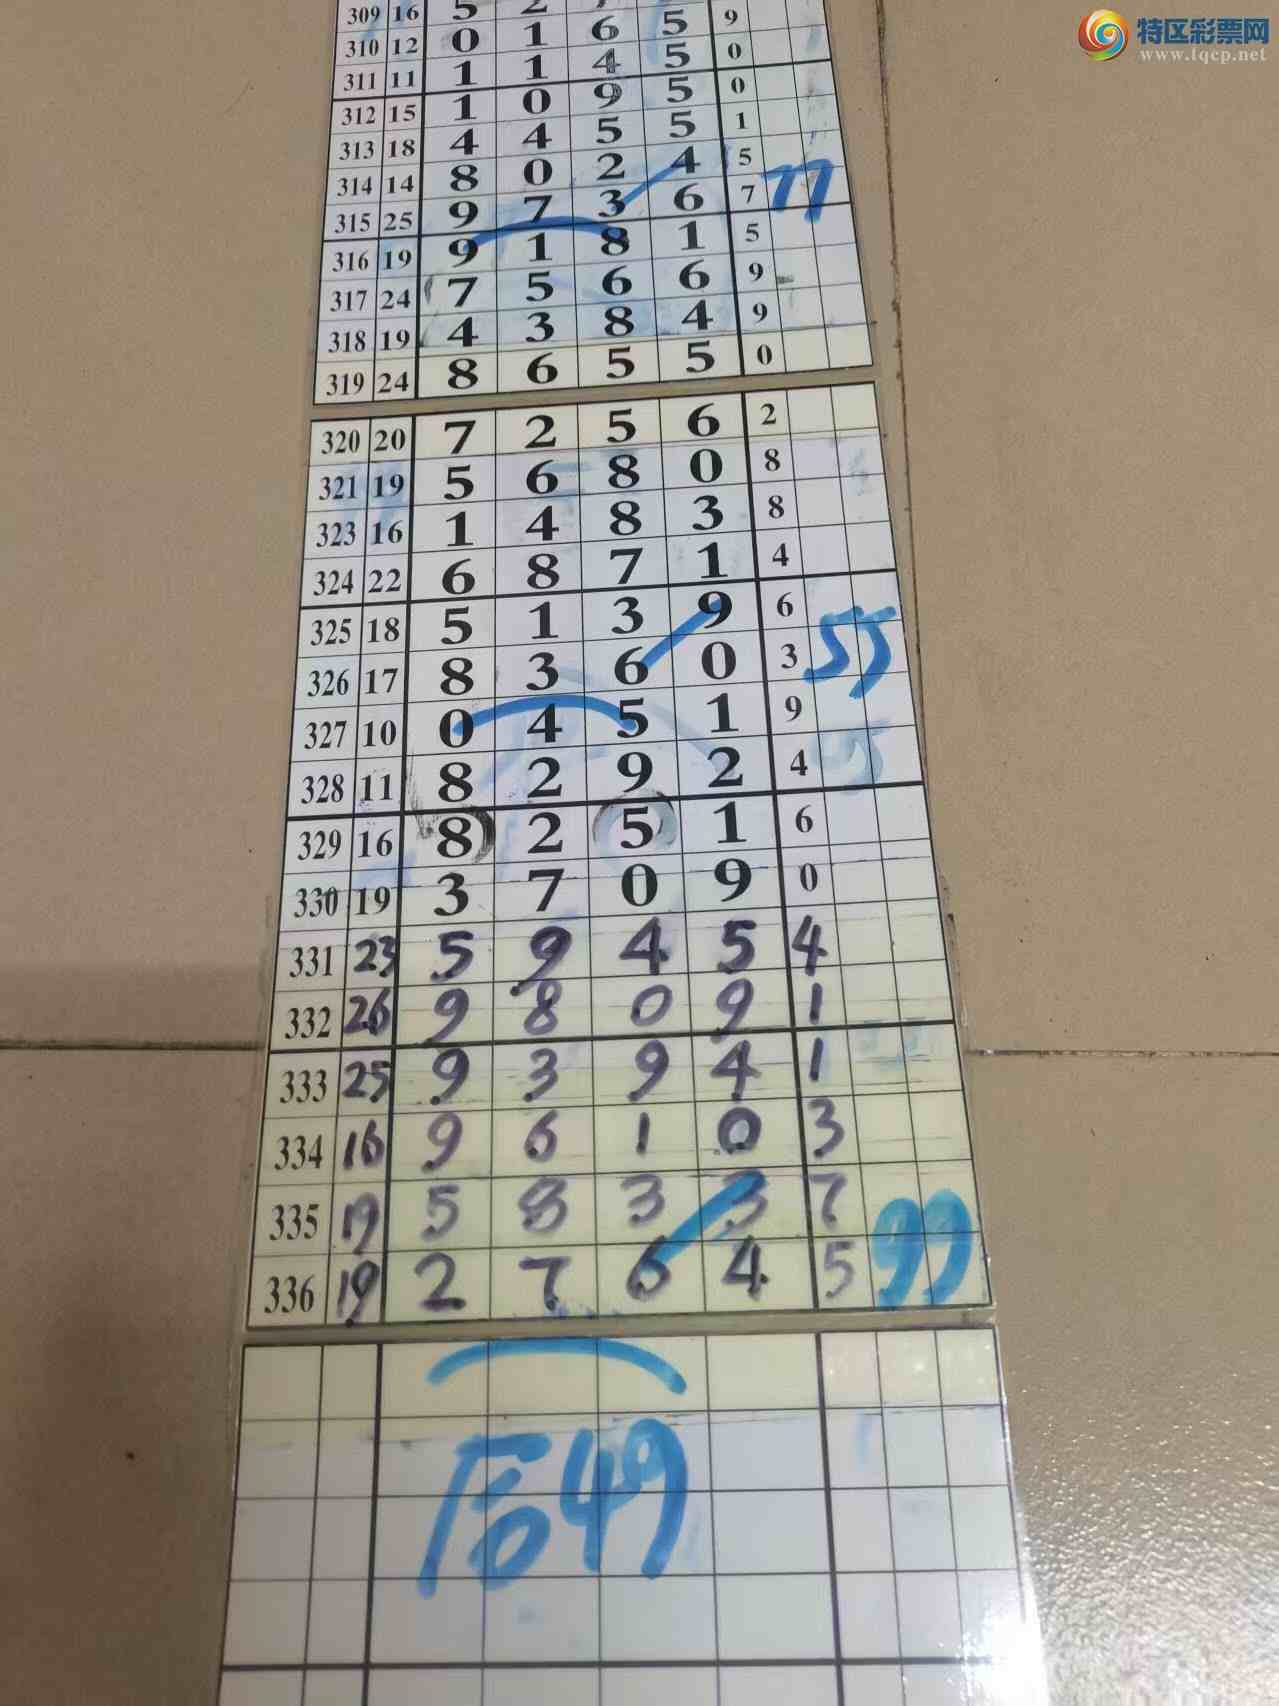 特区彩票网
www.tqcp.net
309 16 5 2 9
310 12 0 1 6 5 0
311 11 1 1 4 5 0
312 15 1 0 9 5 1
313 18 4 4 5 5 5
314 14 8 0 2 4 7 77
315 25 9 7 3 6 5
316 19 9 1 8 1 9
317 24 7 5 6 6 9
318 19 4 3 8 4 0
319 24 8 6 5 5
320 20 7 2 5 6 2
321 19 5 6 8 0 8
323 16 1 4 8 3 8
324 22 6 8 7 1 4
325 18 5 1 3 9 6
326 17 8 3 6 0 3 55
327 10 0 4 5 1 9
328 11 8 2 9 2 4
329 16 8 2 5 1 6
330 19 3 7 0 9 0
331 23 5 9 4 5 4
332 26 9 8 0 9 1
333 25 9 3 9 4 1
334 16 9 6 1 0 3
335 19 5 8 3 3 7
336 19 2 7 6 4 5 99
后49